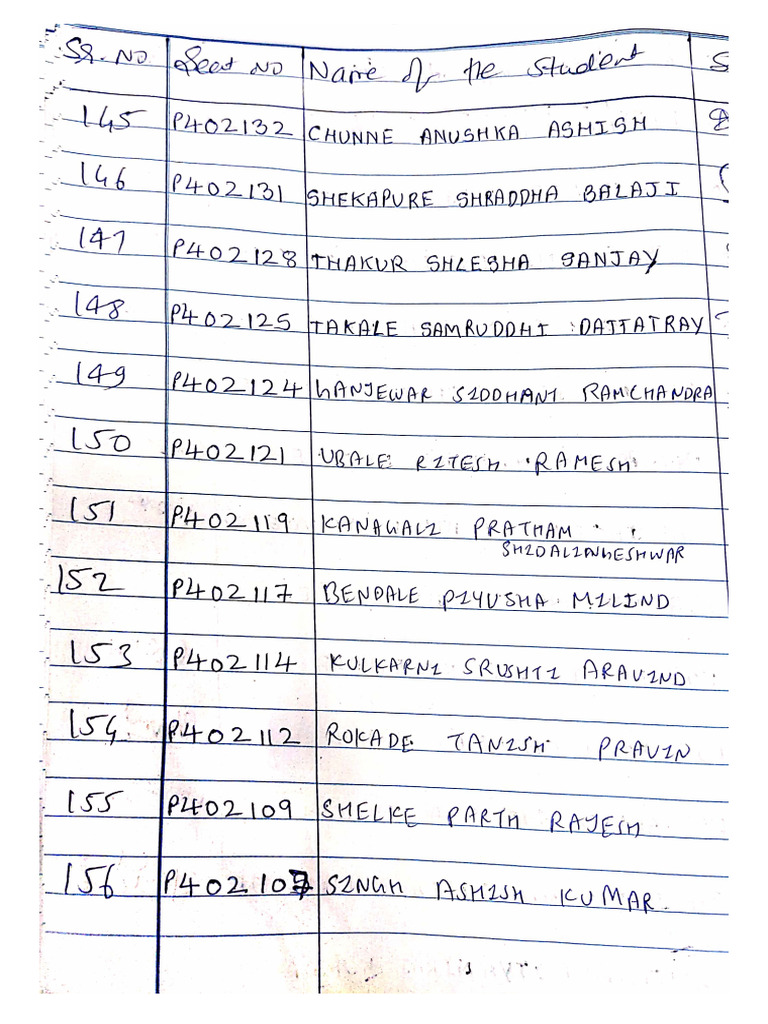 Sr. No Seat No Name of the Student S
145 P402132 CHUNNE ANUSHKA ASHISH
146 P402131 SHEKAPURE SHRADDHA BALAJI
147 P402128 THAKUR SHLESHA SANJAY
148 P402125 TAKALE SAMRUDDHI DATTATRAY
149 P402124 HANJEWAR SIDDHANT RAMCHANDRA
150 P402121 UBALE RITESH RAMESH
151 P402119 KANAGALI PRATHAM
SHIDALINGESHWAR
152 P402117 BENDALE PIYUSHA MILIND
153 P402114 KULKARNI SRUSHTI ARAVIND
154. P402112 ROKADE TANISH PRAVIN
155 P402109 SHELKE PARTH RAJESH
156 P402107 SINGH ASHISH KUMAR.